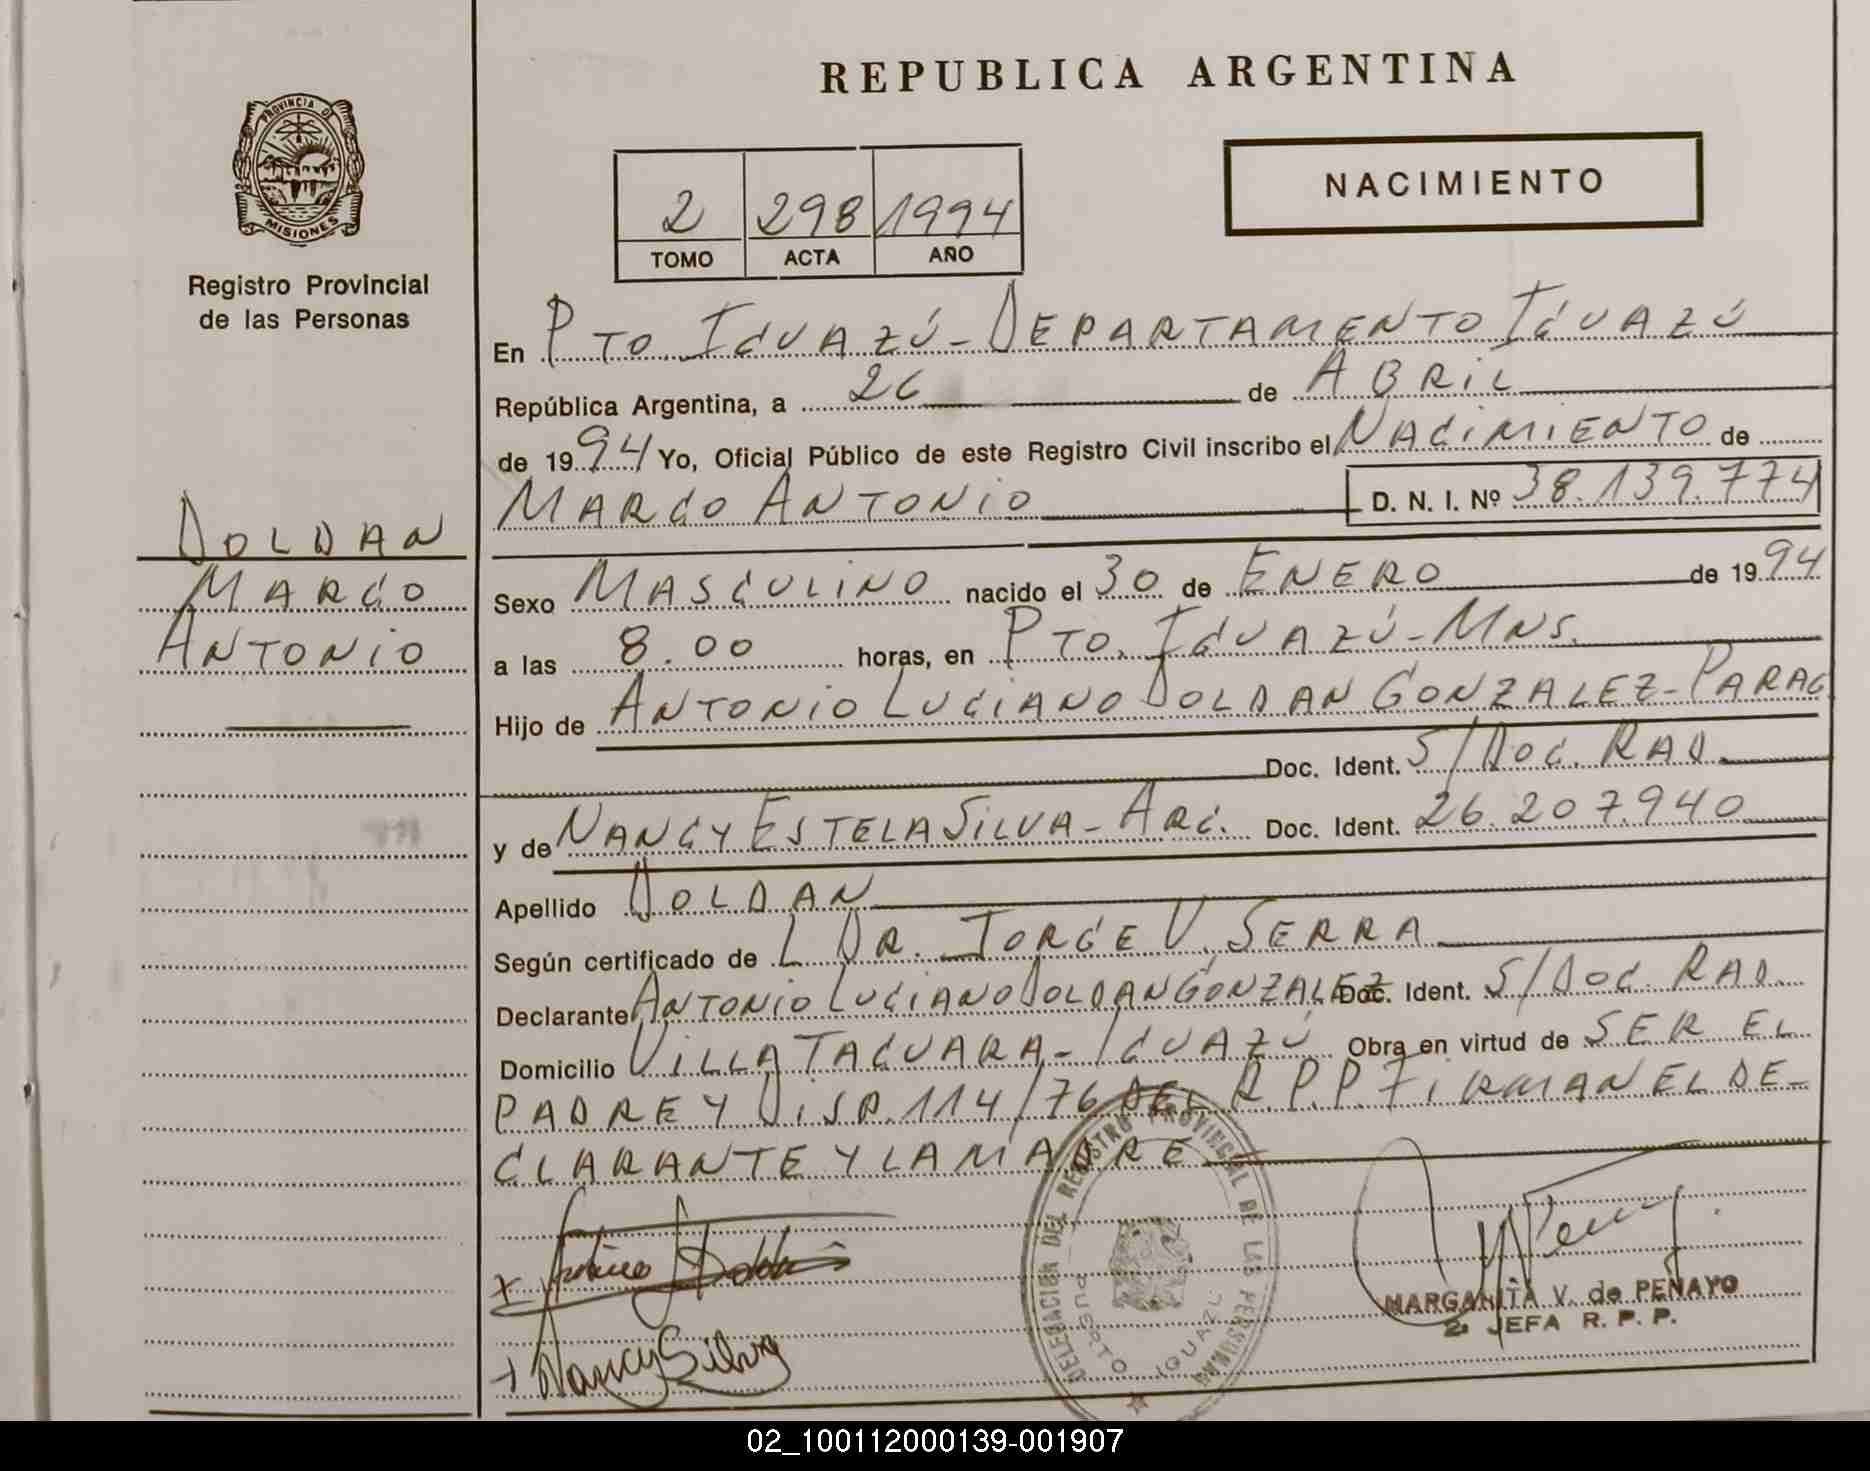 REPUBLICA ARGENTINA
PROVINCIA DE
MISIONES
Registro Provincial
de las Personas
NACIMIENTO
2 298 1994
TOMO ACTA AÑO
En PTO. IGUAZÚ - DEPARTAMENTO IGUAZÚ
República Argentina, a 26 de ABRIL
de 1994 Yo, Oficial Público de este Registro Civil inscribo el NACIMIENTO de
MARCO ANTONIO D. N. I. Nº 38.139.774
DOLDAN
MARCO
ANTONIO
Sexo MASCULINO nacido el 30 de ENERO de 1994
a las 8.00 horas, en PTO. IGUAZÚ - MNS.
Hijo de ANTONIO LUCIANO DOLDAN GONZALEZ - PARAG
Doc. Ident. S/DOC. RAD.
y de NANCY ESTELA SILVA - ARG. Doc. Ident. 26.207.940
Apellido DOLDAN
Según certificado de L DR. JORGE V. SERRA
Declarante ANTONIO LUCIANO DOLDAN GONZALEZ Doc. Ident. S/DOC. RAD.
Domicilio VILLA TACUARA - IGUAZÚ Obra en virtud de SER EL
PADRE Y DISP. 114/76 DEL R.P.P. FIRMAN EL DE-
CLARANTE Y LA MADRE
Nancy Silva
DELEGACION DEL REGISTRO PROVINCIAL DE LAS PERSONAS
PUERTO IGUAZU
MARGARITA V. de PENAYO
2ª JEFA R. P. P.
02_100112000139-001907